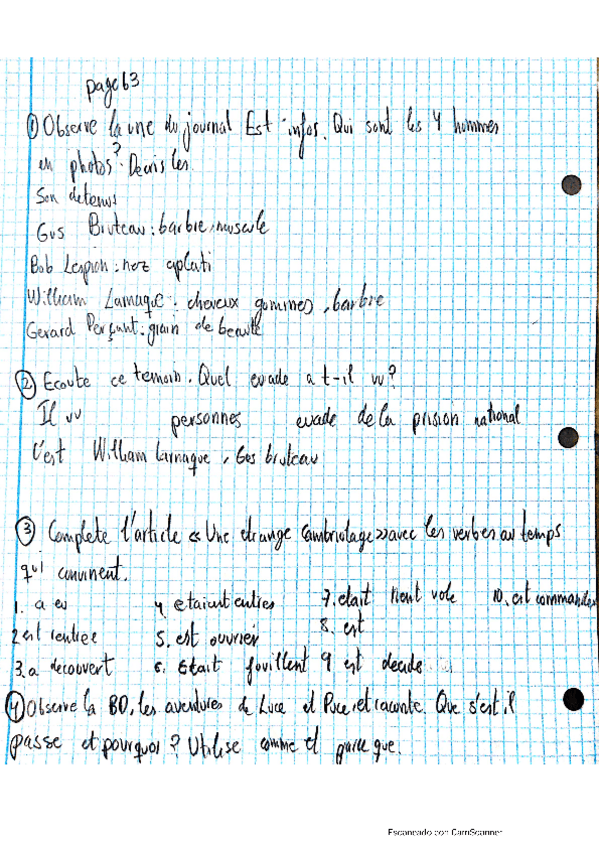 page 63
① Observe la une du journal Est-infos. Qui sont les 4 hommes
en photos? Decris les.
Son detenus
Gus Bruteau: barbie, muscule
Bob Lespion: nez aplati
William Larnaque: cheveux gominés, barbre
Gerard Perçant: grain de beauté
② Ecoute ce temoin. Quel evade a t-il vu?
Il vu personnes evade de la prision national
C'est William Larnaque, Gus bruteau
③ Complete l'article << Une etrange Cambriolage>> avec les verbes au temps
qui convinent.
1. a eu 4. etaient enties 7. etait rient vole 10. est commander
2 est rentree 5. est ouvrier 8. est
3. a decouvert 6. était fouillent 9 est decide
④ Observe la BD, les aventures de Luce et Puce et raconte. Que s'est-il
passe et pourquoi? Utilise comme et parce que.
Escaneado con CamScanner